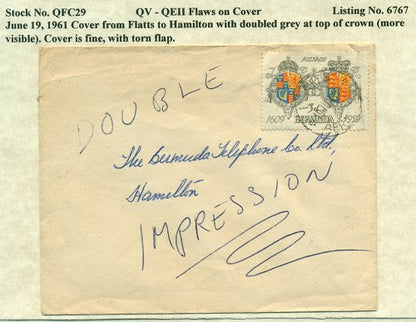 Stock No. QFC29 QV - QEII Flaws on Cover Listing No. 6767
June 19, 1961 Cover from Flatts to Hamilton with doubled grey at top of crown (more
visible). Cover is fine, with torn flap.
DOUBLE
POSTAGE
1609 BERMUDA 1959
The Bermuda Telephone Co. Ltd.,
Hamilton
IMPRESSION